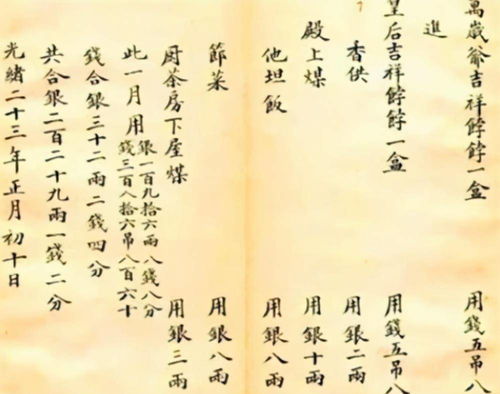 萬歲爺吉祥餑餑一盒 用錢五吊八
進
皇后吉祥餑餑一盒 用錢五吊八
香供 用銀二兩
殿上煤 用銀十兩
他坦飯 用銀八兩
節菜 用銀八兩
厨茶房下屋煤 用銀三兩
此一月用銀一百九拾六兩八錢八分
錢三百八拾六吊八百六十
錢合銀三十二兩二錢四分
共合銀二百二十九兩一錢二分
光緒二十三年正月初十日